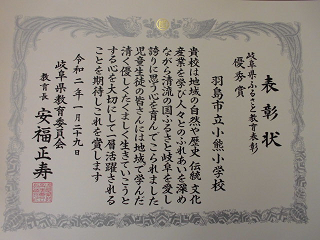 表彰状
岐阜県ふるさと教育表彰
優秀賞
羽島市立小熊小学校
貴校は地域の自然や歴史 伝統 文化
産業を学び人々とのふれあいを深め
ながら清流の国ふるさと岐阜を愛し
誇りに思う心を育んでこられました
児童生徒の皆さんには地域で学んだ
清く優しくたくましく生きていこうと
する心を大切にして一層活躍される
ことを期待しこれを賞します
令和二年一月二十九日
岐阜県教育委員会
教育長 安福正寿